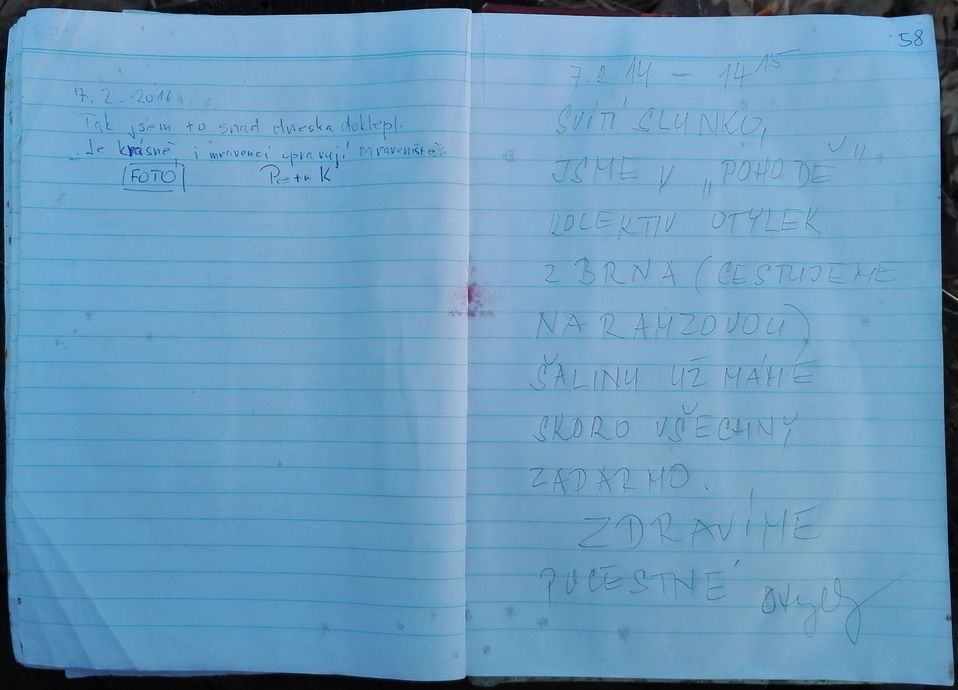 7. 2. 2016
Tak jsem to snad dneska doklepl.
Je krásně, i mravenci opravují mraveniště.
FOTO Petr K
58
7.2.14 – 14¹⁵
SVÍTÍ SLUNKO,
JSME V „POHODĚ"
KOLEKTIV OTYLEK
Z BRNA (CESTUJEME
NA RAMZOVOU)
ŠALINU UŽ MÁME
SKORO VŠECHNY
ZADARMO.
ZDRAVÍME
POCESTNÉ Otyly